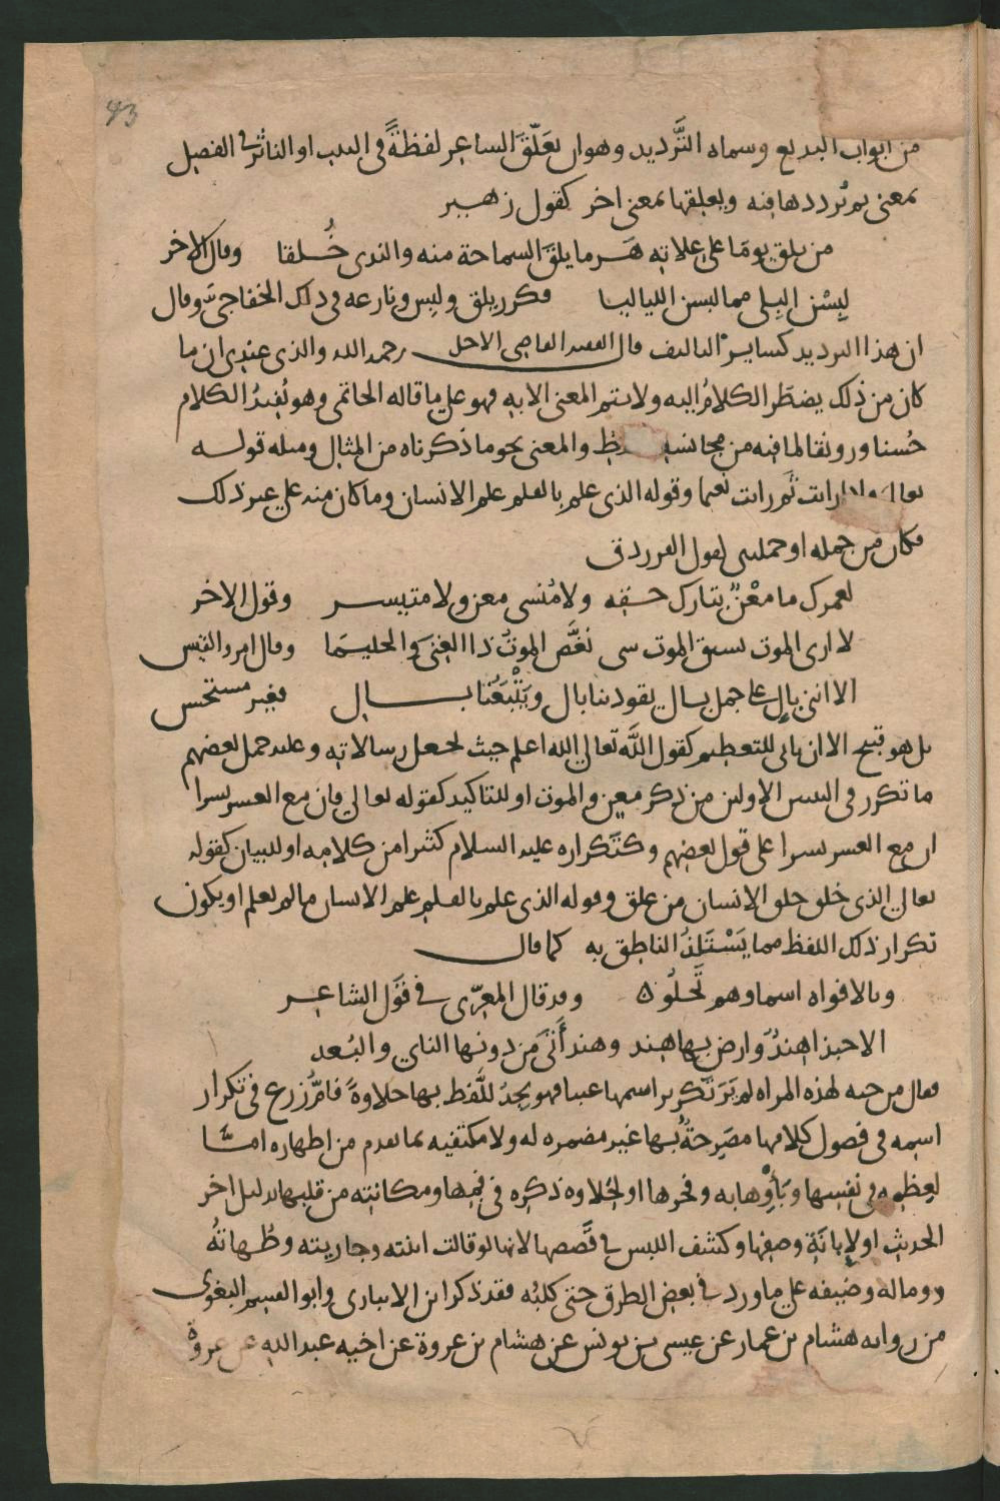 43
من ابواب البديع وسماه التَّرديد وهو ان يعَلّقَ الشاعر لفظةً فى البيت او الناثر فى الفصل
بمعنى ثم يُرددها فيه ويعلقها بمعنى اخر كقول زهير
من يلق يومًا على علاته هَرما يلقَ السماحة منه والندى خُلقا وقال الاخر
لبِسْن البِلى مما لبسن اللياليا فكرر يلق ولبس ونازعه فى ذلك الخفاجىّ وقال
ان هذا الترديد كساير التاليف قال الفقيه القاضى الاجل رحمه الله والذى عندى ان ما
كان من ذلك يضطَر الكلامُ اليه ولا يتم المعنى الا به فهو على ما قاله الحاتمى وهو يُفيدُ الكلام
حُسنا ورونقا لما فيه من مجانسة اللفظ والمعنى نحو ما ذكرناه من المثال ومثله قوله
تعالى واذا رايت ثَم رايت نعيما وقوله الذى علم بالقلم علم الانسان وما كان منه على غير ذلك
فكان من جمله او جملتين كقول الفرزدق
لعمرك ما معْنٌ بتارك حقه ولا مُنسى معن ولا متيسر وقول الاخر
لا ارى الموت يسبق الموت شى نغَّص الموتُ ذا الغنى والحليمَا وقال امرو القيس
الا اننى بالٍ على جمل بال يقود بنا بال ويَتْبَعُنا بال فغير مستحسن
بل هو قبيح الا ان ياتى للتعظيم كقول اللَّه تعالى الله اعلم حيث يجعل رسالاته وعليه حمل بعضهم
ما تكرر فى البيتين الاولين من ذكر معن والموت او للتاكيد كقوله تعالى فان مع العسر يسرا
ان مع العسر يسرا على قول بعضهم وكتَكراره عليه السلام كثيرا من كلامه او للبيان كقوله
تعالى الذى خلق خلق الانسان من علق وقوله الذى علم بالقلم علم الانسان ما لم يعلم او يكون
تكرار ذلك اللفظ مما يَسْتَلذُ الناطق به كما قال
وبالافواه اسماوهم تَحلُو ه وقد قال المعرّى فى قَول الشاعر
الا حبذا هندٌ وارض بها هند وهند أَتىَ من دونها الناى والبُعد
فقال من حبه لهذه المراه لم يَرَ تكرير اسمها عيبا فهو يجِدُ للَّفظ بها حلاوةً فامُّ زرع فى تكرار
اسمه فى فصول كلامها مصَرحةٌ بها غير مضمره له ولا مكتفيه بما تقدم من اظهاره امَّا
لعِظمه فى نفسها وبَأْوِها به وفخرها او لحُلاوه ذكره فى فيها ومكانته من قلبها بدليل اخر
الحديث او لإبانَةِ وصفها وكشف اللبس فى قَصصها لانها لو قالت ابنته وجاريته وطُهاتهُ
وماله وضيفه على ما ورد فى بعض الطرق حتى كلبُه فقد ذكر ابن الانبارى وابو القسم البغوى
من روايه هشام بن عمار عن عيسى بن يونس عن هشام بن عروة عن اخيه عبد الله عن عروة